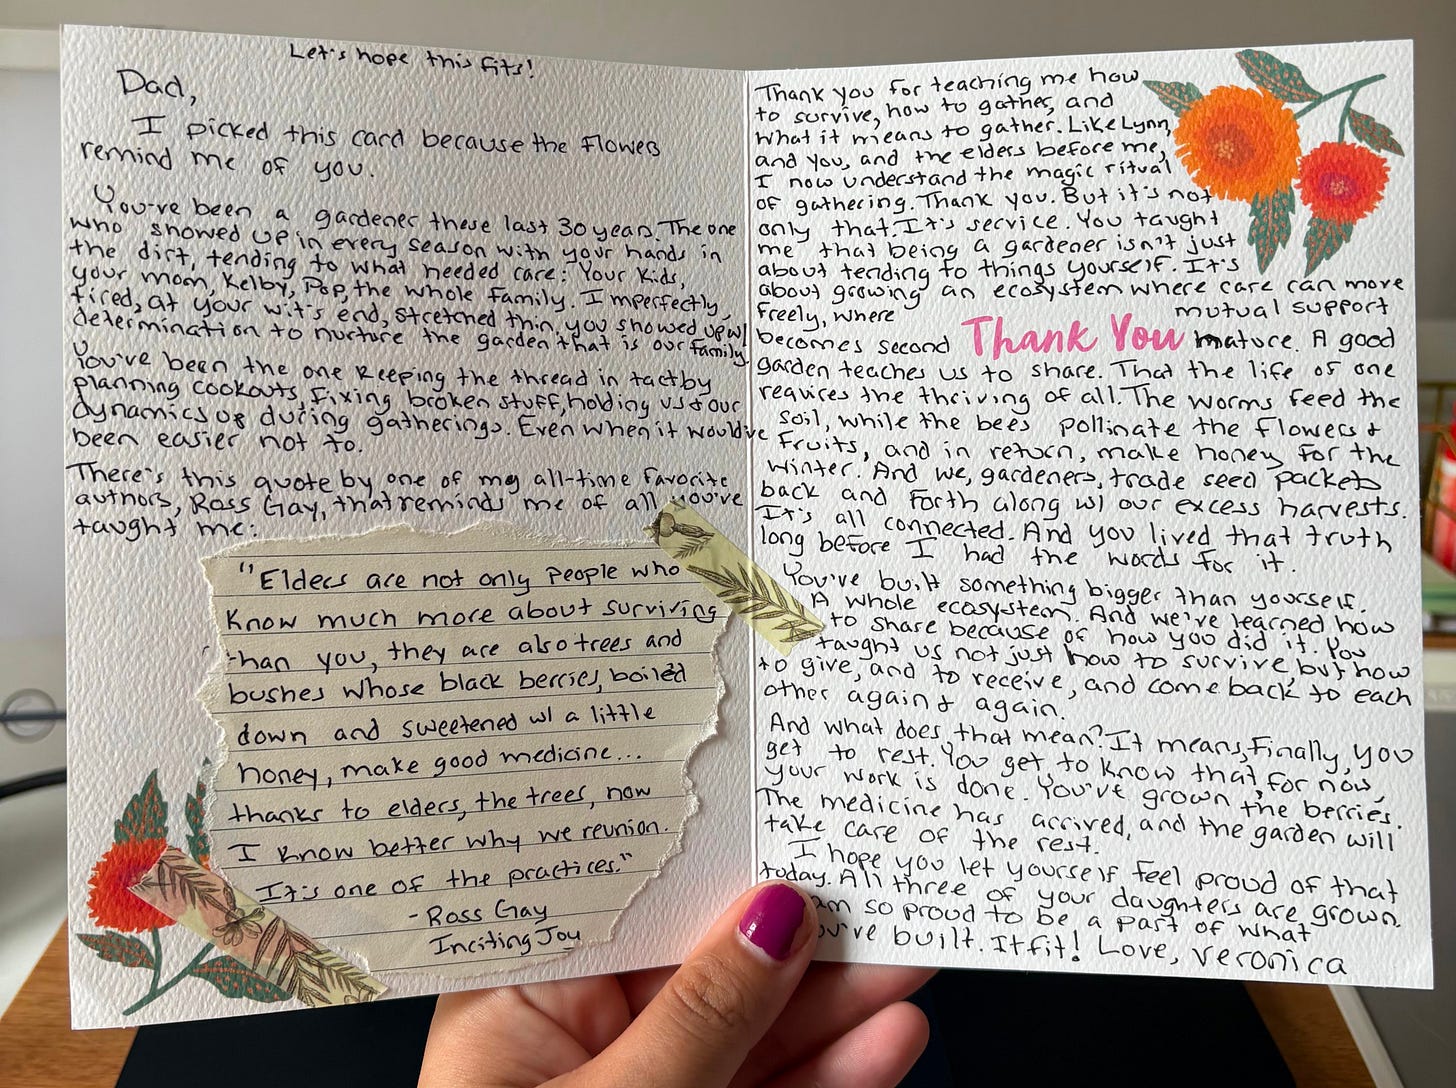 Let's hope this fits!
Dad,
I picked this card because the flowers
remind me of you.
You've been a gardener these last 30 years. The one
who showed up in every season with your hands in
the dirt, tending to what needed care: Your kids,
your mom, Kelby, Pop, the whole family. Imperfectly,
tired, at your wit's end, stretched thin, you showed up w/
determination to nurture the garden that is our family.
You've been the one keeping the thread in tact by
planning cookouts, fixing broken stuff, holding us & our
dynamics up during gatherings. Even when it would've
been easier not to.
There's this quote by one of my all-time favorite
authors, Ross Gay, that reminds me of all you've
taught me:
"Elders are not only people who
know much more about surviving
than you, they are also trees and
bushes whose black berries, boiled
down and sweetened w/ a little
honey, make good medicine...
thanks to elders, the trees, now
I know better why we reunion.
It's one of the practices."
- Ross Gay
Inciting Joy
Thank you for teaching me how
to survive, how to gather, and
what it means to gather. Like Lynn,
and you, and the elders before me,
I now understand the magic ritual
of gathering. Thank you. But it's not
only that. It's service. You taught
me that being a gardener isn't just
about tending to things yourself. It's
about growing an ecosystem where care can more
freely, where mutual support
becomes second Thank You mature. A good
garden teaches us to share. That the life of one
requires the thriving of all. The worms feed the
soil, while the bees pollinate the flowers &
fruits, and in return, make honey for the
winter. And we, gardeners, trade seed packets
back and forth along w/ our excess harvests.
It's all connected. And you lived that truth
long before I had the words for it.
You've built something bigger than yourself.
A whole ecosystem. And we've learned how
to share because of how you did it. You
taught us not just how to survive, but how
to give, and to receive, and come back to each
other again & again.
And what does that mean? It means, finally, you
get to rest. You get to know that, for now,
your work is done. You've grown the berries.
The medicine has arrived, and the garden will
take care of the rest.
I hope you let yourself feel proud of that
today. All three of your daughters are grown.
am so proud to be a part of what
you've built. It fit! Love, Veronica